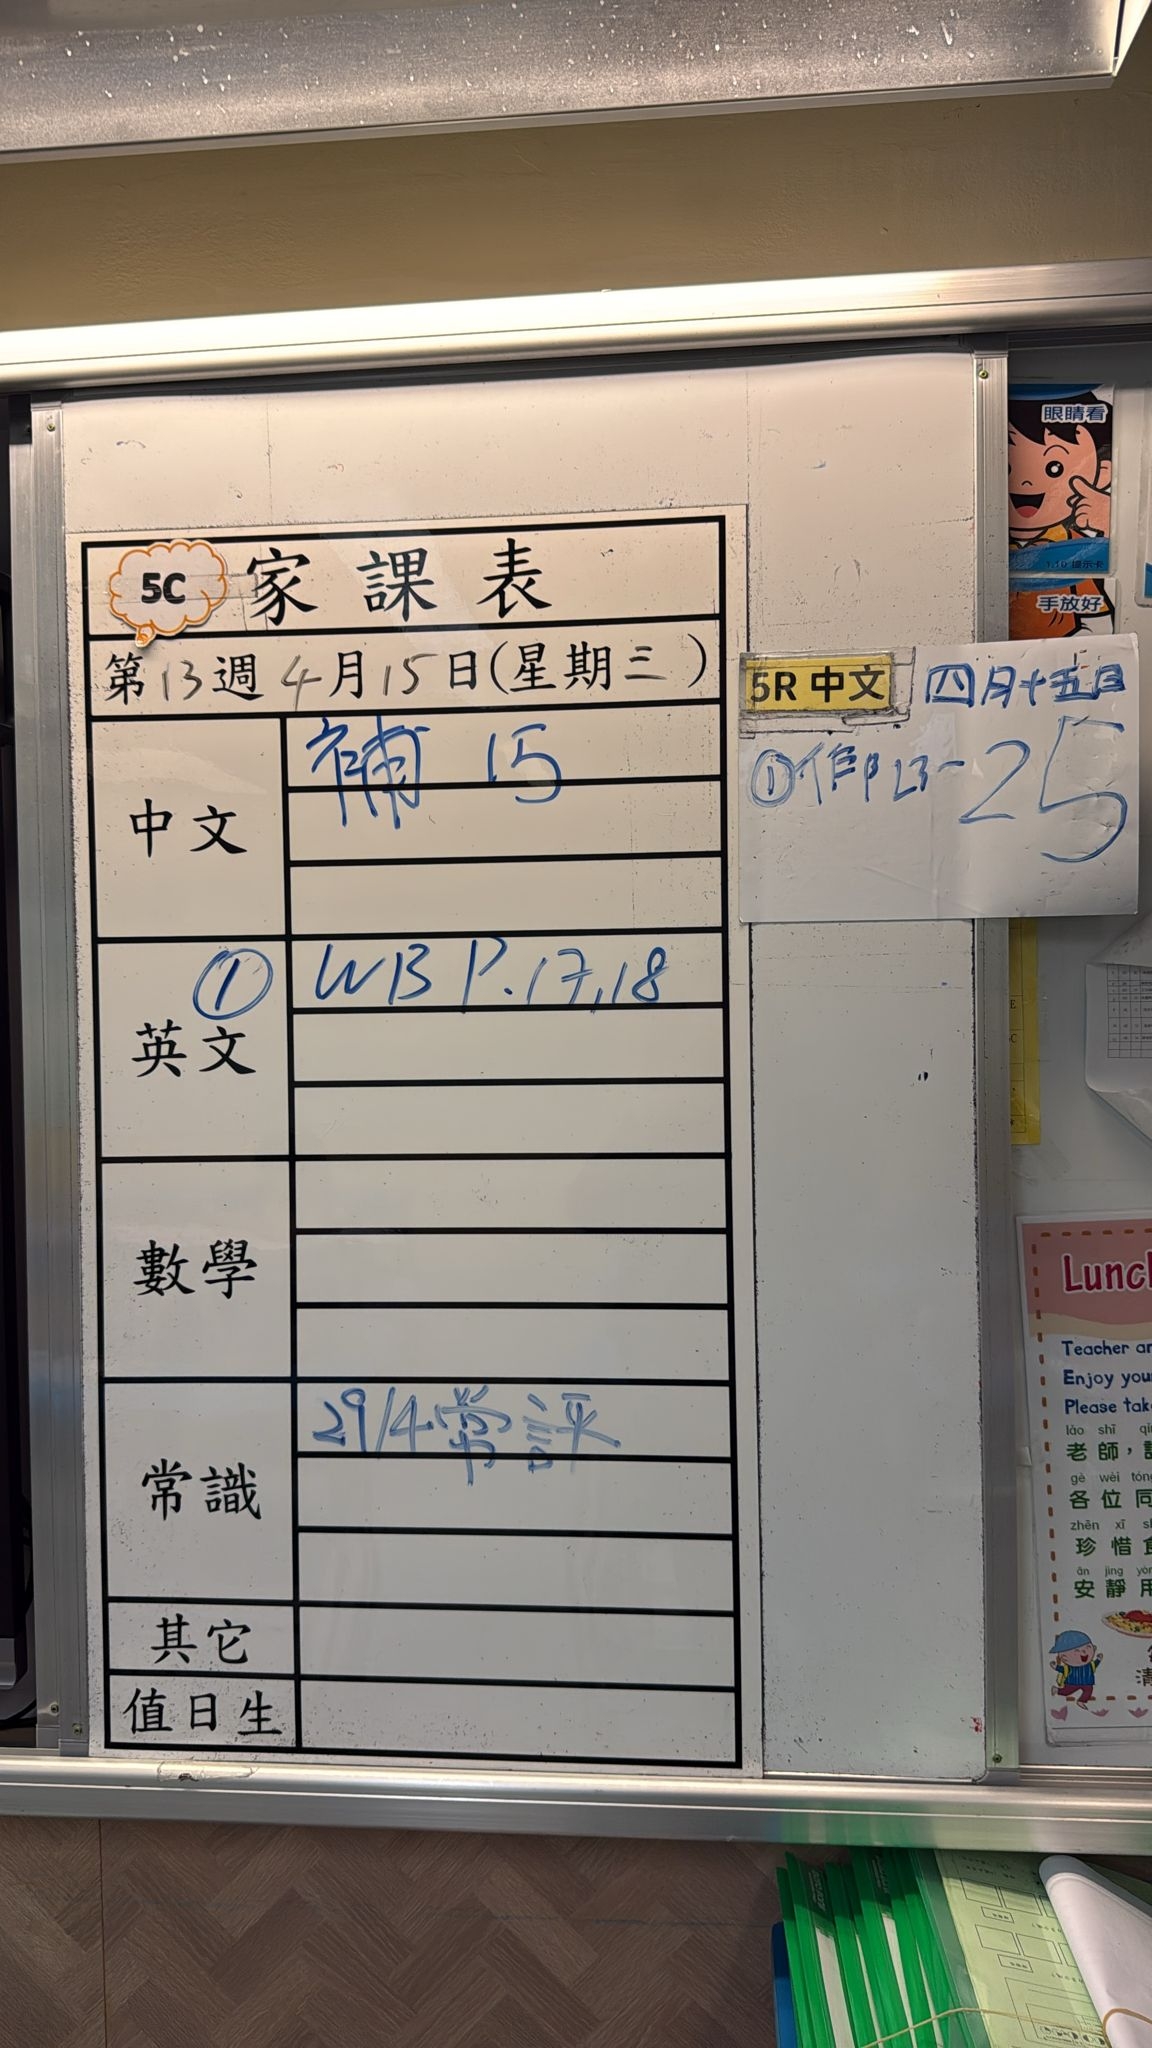 5C 家課表
第13週4月15日(星期三)
中文
補 15
英文
① WB P.17,18
數學
常識
29/4常評
其它
值日生
5R 中文 四月十五日
① 23-25
眼睛看
1.10 提示卡
手放好
Lunch
Teacher
Enjoy your
Please take
lǎo shī
老師,
gè wèi
各位同
zhēn xī
珍惜食
ān jìng
安靜用